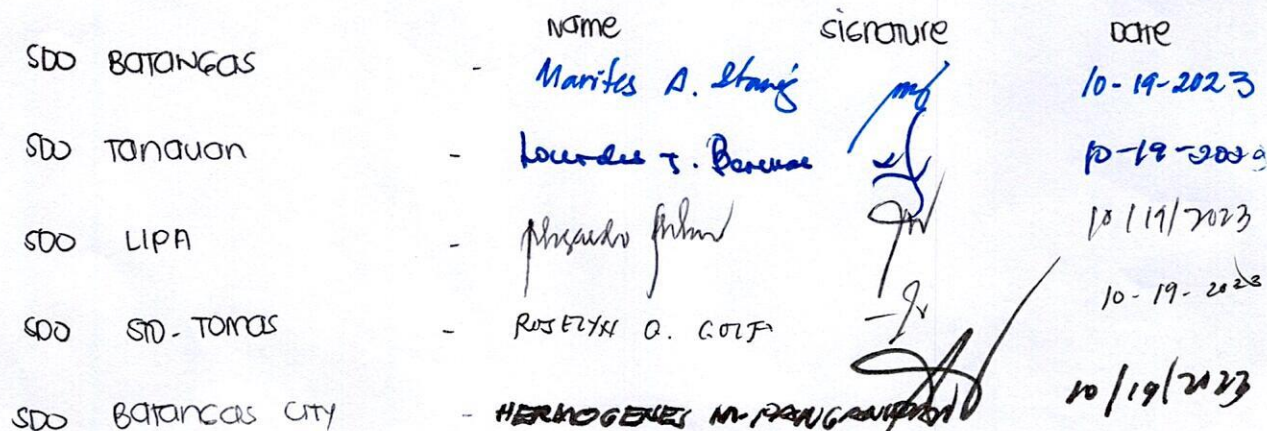 Name signature Date
SDO BATANGAS - Marites A.
SDO Tanauan - Lourdes T. 10-19-2023
SDO LIPA - 10/19/2023
SDO STO. TOMAS - ROSELYN Q. GOLF 10-19-2023
SDO Batangas City - HERMOGENES M. PANGANIBAN 10/19/2023